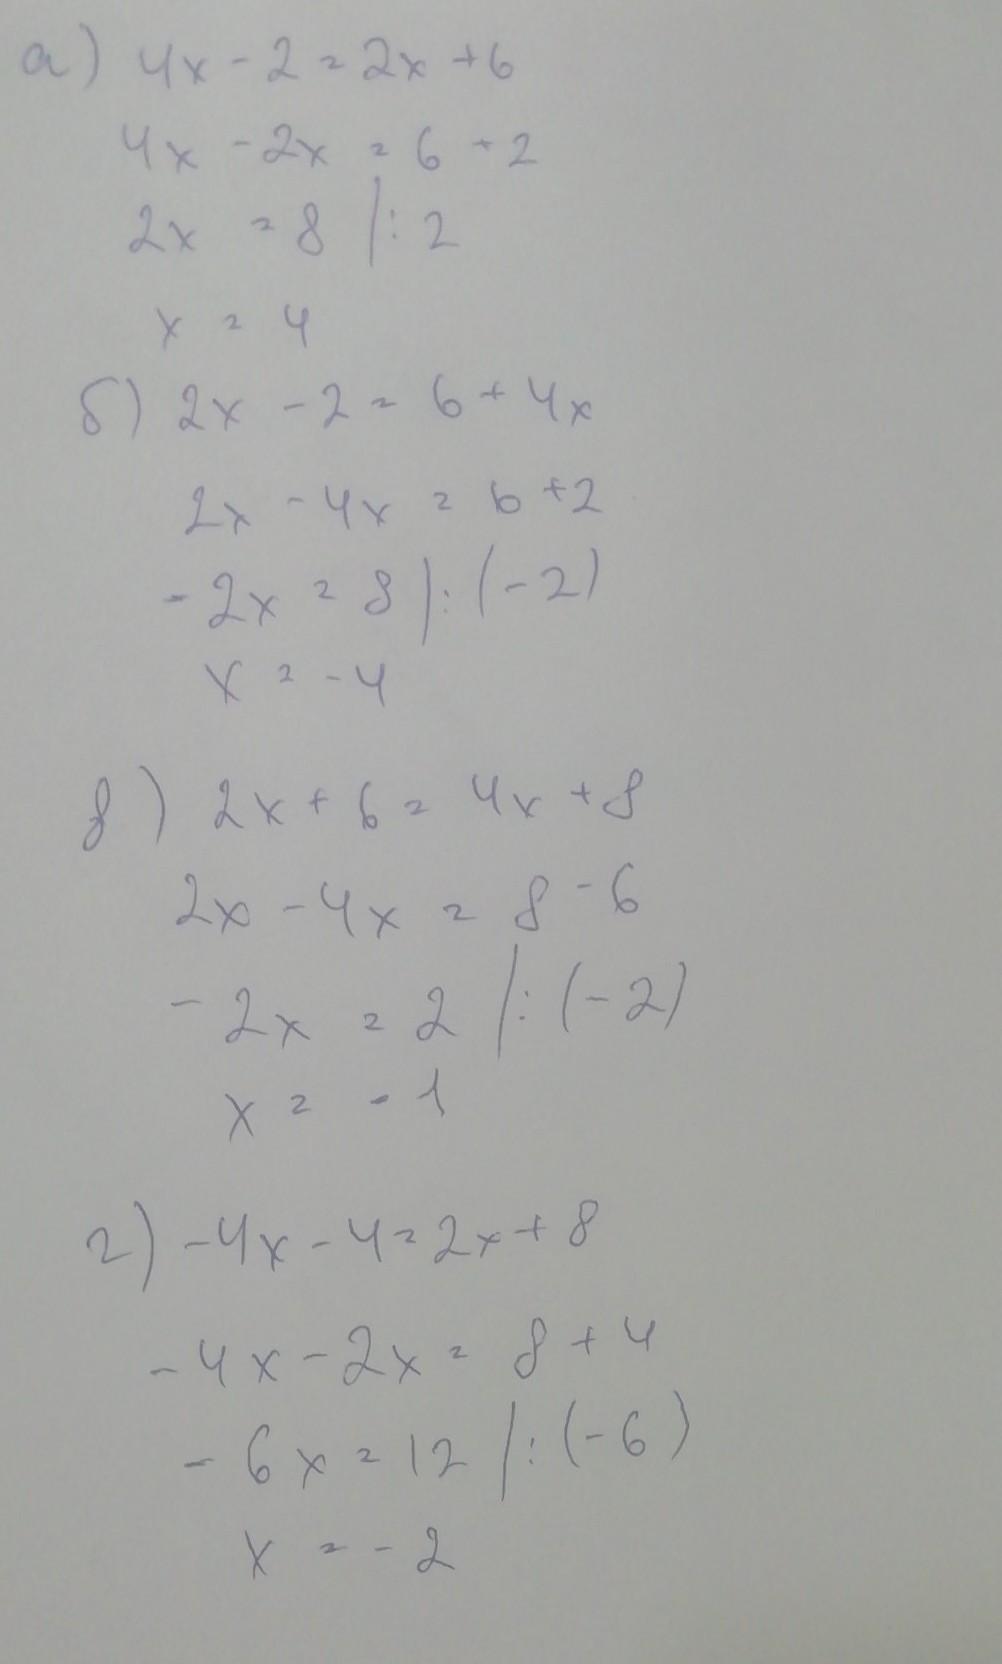 а) 4x - 2 = 2x + 6
4x - 2x = 6 + 2
2x = 8 |: 2
x = 4
б) 2x - 2 = 6 + 4x
2x - 4x = 6 + 2
- 2x = 8 |: (-2)
x = -4
в) 2x + 6 = 4x + 8
2x - 4x = 8 - 6
- 2x = 2 |: (-2)
x = -1
г) -4x - 4 = 2x + 8
-4x - 2x = 8 + 4
- 6x = 12 |: (-6)
x = -2